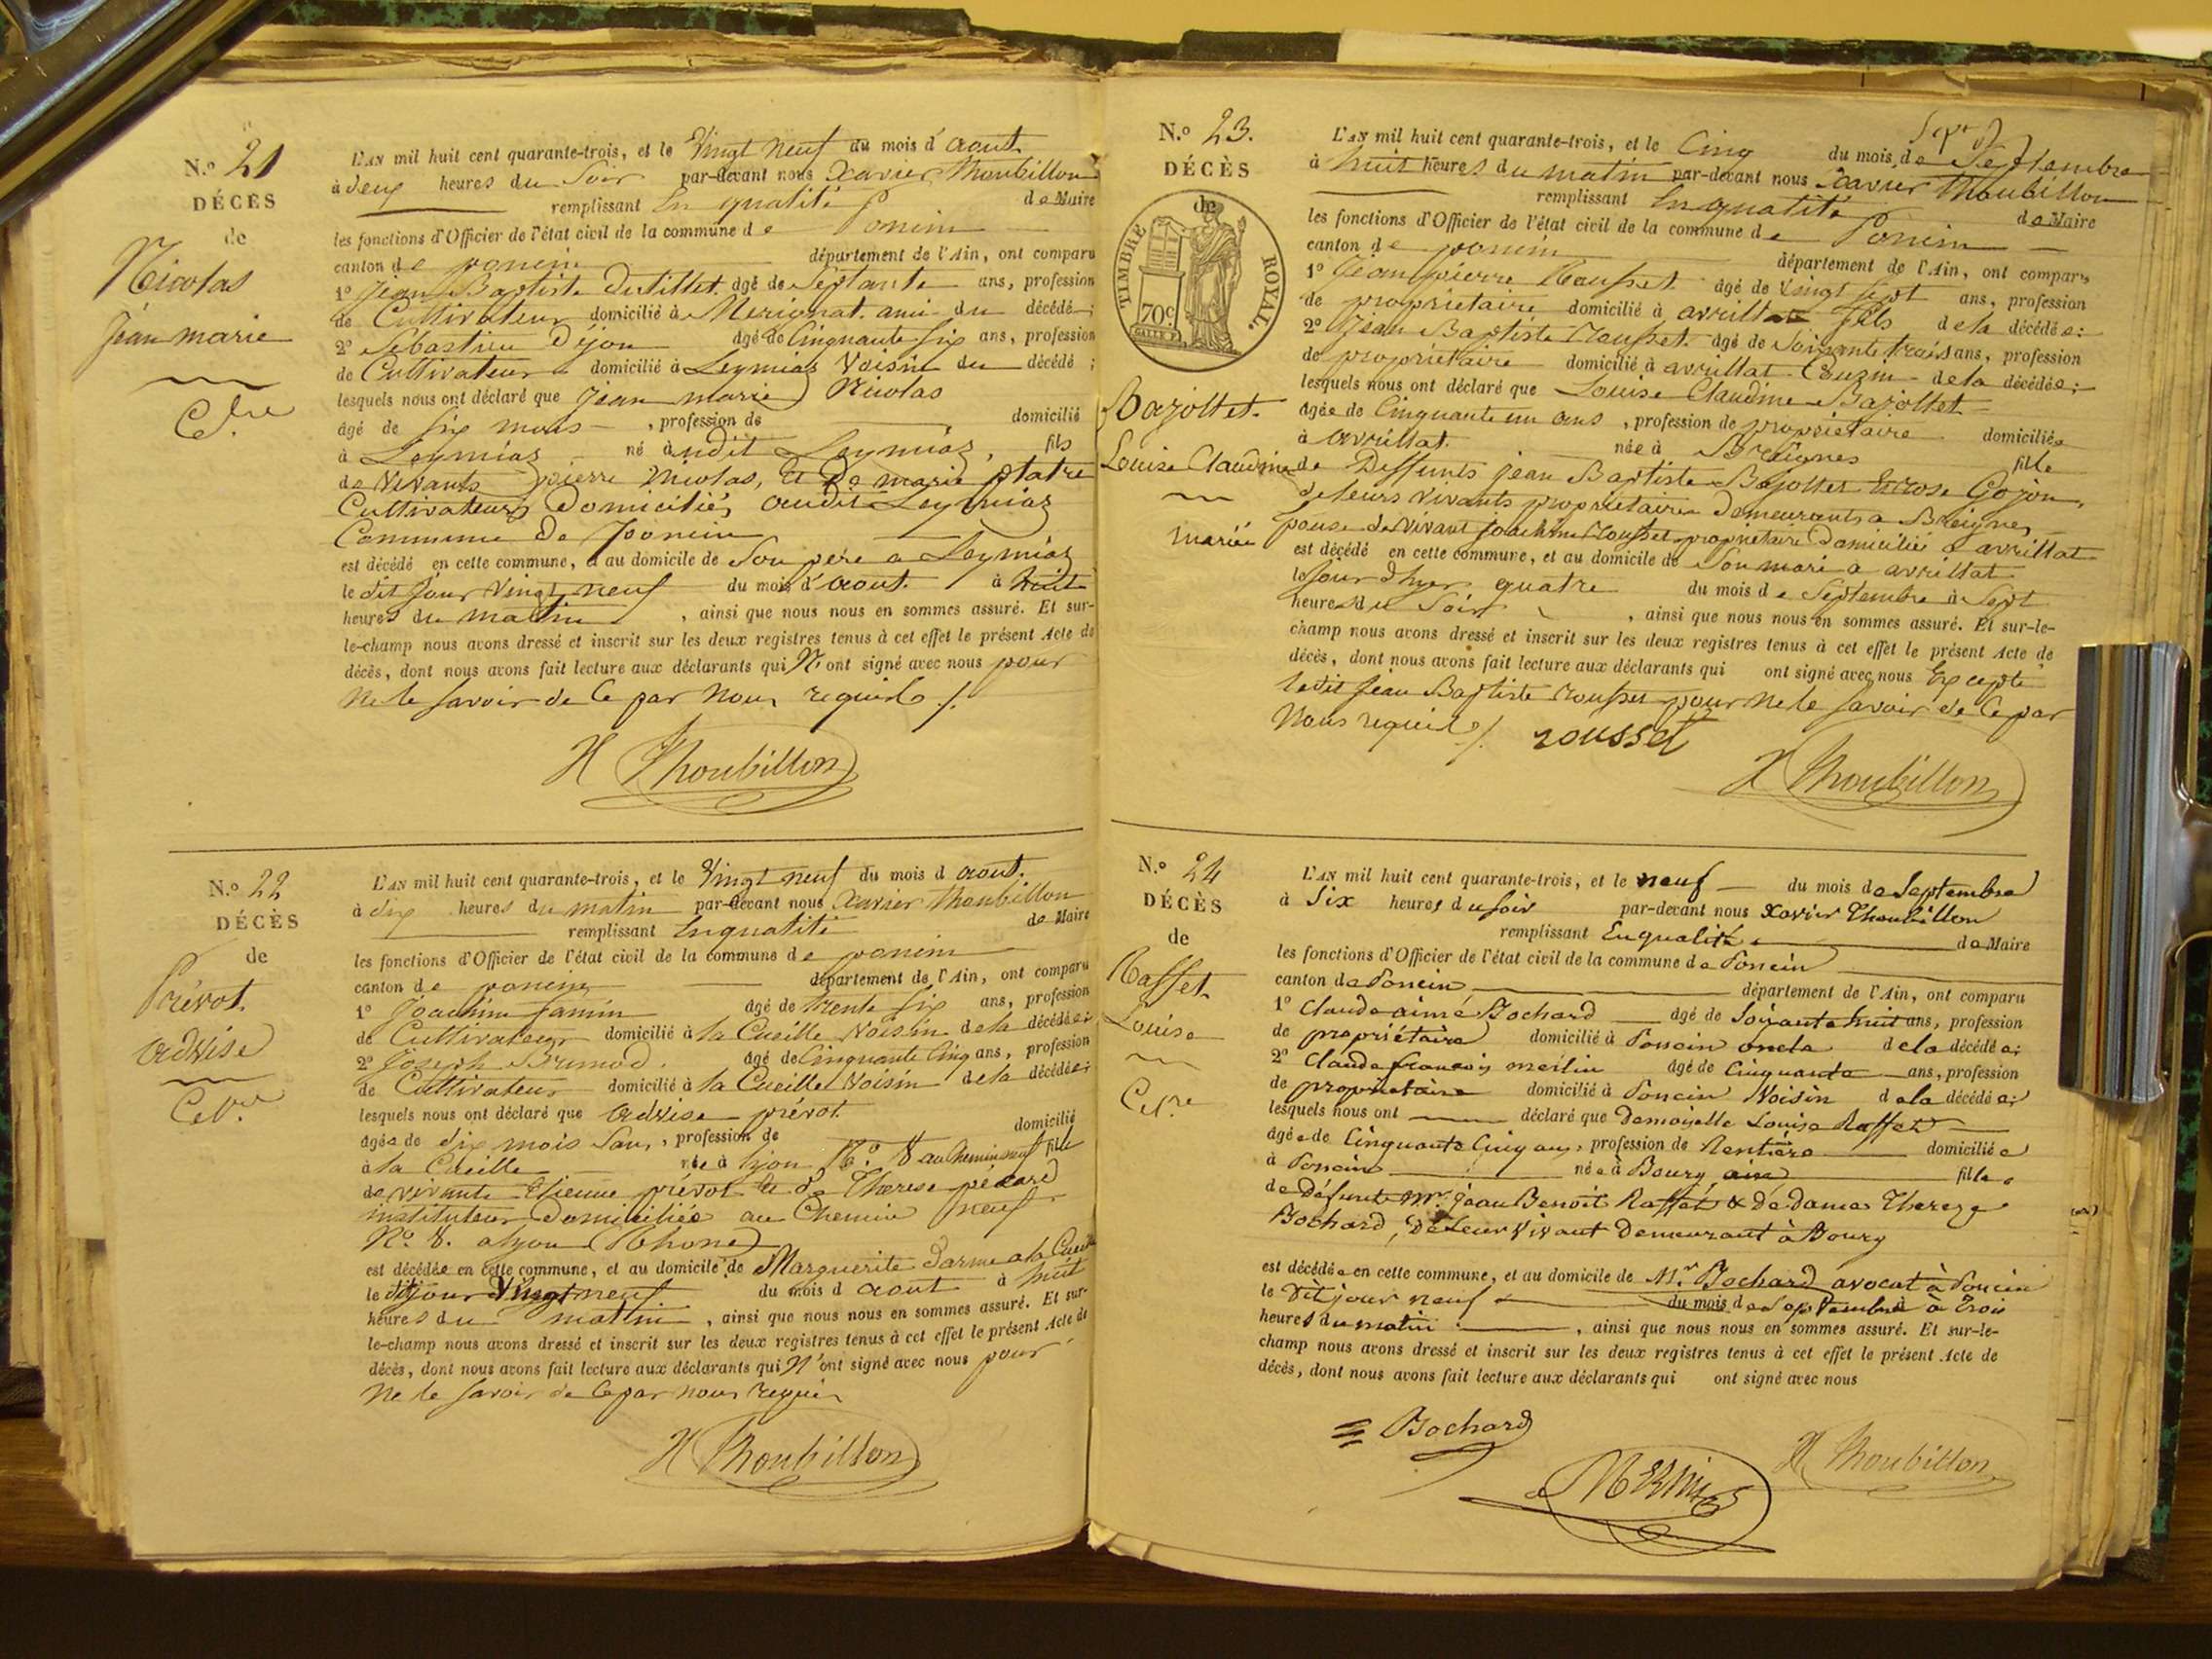 N.º 21
DÉCÈS
de
Nicolas
Jean marie
Cel.re
L'AN mil huit cent quarante-trois, et le Vingt neuf du mois d'aout
à deux heures du Soir par-devant nous Xavier Thoubillon
remplissant En qualité de Maire
les fonctions d'Officier de l'état civil de la commune de Poncin
canton de poncin département de l'Ain, ont comparu
1º Jean Baptiste Dutillet âgé de Septante ans, profession
de Cultivateur domicilié à Merignat ami du décédé;
2º Sebastien Déjon âgé de Cinquante six ans, profession
de Cultivateur domicilié à Leymiaz Voisin du décédé;
lesquels nous ont déclaré que Jean marie Nicolas
âgé de six mois, profession de domicilié
à Leymiaz né audit Leymiaz, fils
de Vivants pierre Nicolas, et De marie platre
Cultivateurs Domiciliés audit Leymiaz
Commune de Poncin
est décédé en cette commune, et au domicile de Son père a Leymiaz
le dit jour Vingt neuf du mois d'aout à huit
heures du matin, ainsi que nous nous en sommes assuré. Et sur-
le-champ nous avons dressé et inscrit sur les deux registres tenus à cet effet le présent Acte de
décès, dont nous avons fait lecture aux déclarants qui N'ont signé avec nous pour
ne le savoir de Ce par Nous requis ./.
X Thoubillon
N.º 22
DÉCÈS
de
Prévot
advise
Cel.re
L'AN mil huit cent quarante-trois, et le Vingt neuf du mois d aout
à dix heures du matin par-devant nous Xavier Thoubillon
remplissant En qualité de Maire
les fonctions d'Officier de l'état civil de la commune de poncin
canton de poncin département de l'Ain, ont comparu
1º Joachim Jamin âgé de trente six ans, profession
de Cultivateur domicilié à la Cueille Voisin de la décédée;
2º Joseph Brunod âgé de Cinquante Cinq ans, profession
de Cultivateur domicilié à la Cueille Voisin de la décédée;
lesquels nous ont déclaré que advise prévot
âgée de dix mois, profession de domicilié
à la Cueille née à lyon N.º 8 au Chemin neuf fille
de vivants Etienne prévot et de Therese pécard
instituteur Domiciliés au Chemin neuf
N.º 8. a lyon (Rhone)
est décédée en cette commune, et au domicile de Marguerite Darme a la Cueille
le dit jour Vingt neuf du mois d aout à huit
heures du matin, ainsi que nous nous en sommes assuré. Et sur-
le-champ nous avons dressé et inscrit sur les deux registres tenus à cet effet le présent Acte de
décès, dont nous avons fait lecture aux déclarants qui N'ont signé avec nous pour
ne le savoir de Ce par nous requis
X Thoubillon
N.º 23.
DÉCÈS
de
TIMBRE ROYAL.
70c.
Bajollet.
Louise Claudine
mariée
L'AN mil huit cent quarante-trois, et le Cinq du mois de Septembre
à huit heures du matin par-devant nous Xavier Thoubillon
remplissant En qualité de Maire
les fonctions d'Officier de l'état civil de la commune de Poncin
canton de poncin département de l'Ain, ont comparu
1º Jean pierre Rousset âgé de Vingt sept ans, profession
de propriétaire domicilié à avrillat fils de la décédée:
2º Jean Baptiste Rousset âgé de Soixante trois ans, profession
de propriétaire domicilié à avrillat Couzin de la décédée;
lesquels nous ont déclaré que Louise Claudine Bajollet
âgée de Cinquante un ans, profession de propriétaire domiciliée
à avrillat née à Breignes fille
de Deffunts jean Baptiste Bajollet Et rose Gojon,
de leurs Vivants propriétaires Demeurants a Breignes
Epouse de Vivant Joachim Rousset propriétaire Domicilié à avrillat
est décédé en cette commune, et au domicile de Son mari a avrillat
le Jour d'hyer quatre du mois de Septembre à Sept
heures du Soir, ainsi que nous nous en sommes assuré. Et sur-le-
champ nous avons dressé et inscrit sur les deux registres tenus à cet effet le présent Acte de
décès, dont nous avons fait lecture aux déclarants qui ont signé avec nous Excepté
ledit Jean Baptiste rousset pour Ne le savoir de Ce par
Nous requis ./. rousset
X Thoubillon
N.º 24
DÉCÈS
de
Raffet
Louise
Cel.re
L'AN mil huit cent quarante-trois, et le neuf du mois de Septembre
à Six heures du soir par-devant nous Xavier Thoubillon
remplissant En qualité de Maire
les fonctions d'Officier de l'état civil de la commune de Poncin
canton de Poncin département de l'Ain, ont comparu
1º Claude aimé Bochard âgé de Soixante huit ans, profession
de propriétaire domicilié à Poncin oncle de la décédée;
2º Claude françois merlin âgé de Cinquante ans, profession
de propriétaire domicilié à Poncin Voisin de la décédée;
lesquels nous ont déclaré que Demoiselle Louise Raffet
âgée de Cinquante Cinq ans, profession de Rentière domiciliée
à Poncin née à Bourg ain fille
de Défunts Mr. Jean Benoit Raffet & de Dame Thereze
Bochard, De Leur Vivant Demeurant à Bourg
est décédée en cette commune, et au domicile de M.r Bochard avocat à Poncin
le Dit jour neuf du mois de Septembre à Trois
heures du matin, ainsi que nous nous en sommes assuré. Et sur-le-
champ nous avons dressé et inscrit sur les deux registres tenus à cet effet le présent Acte de
décès, dont nous avons fait lecture aux déclarants qui ont signé avec nous
Bochard
Merlin
X Thoubillon